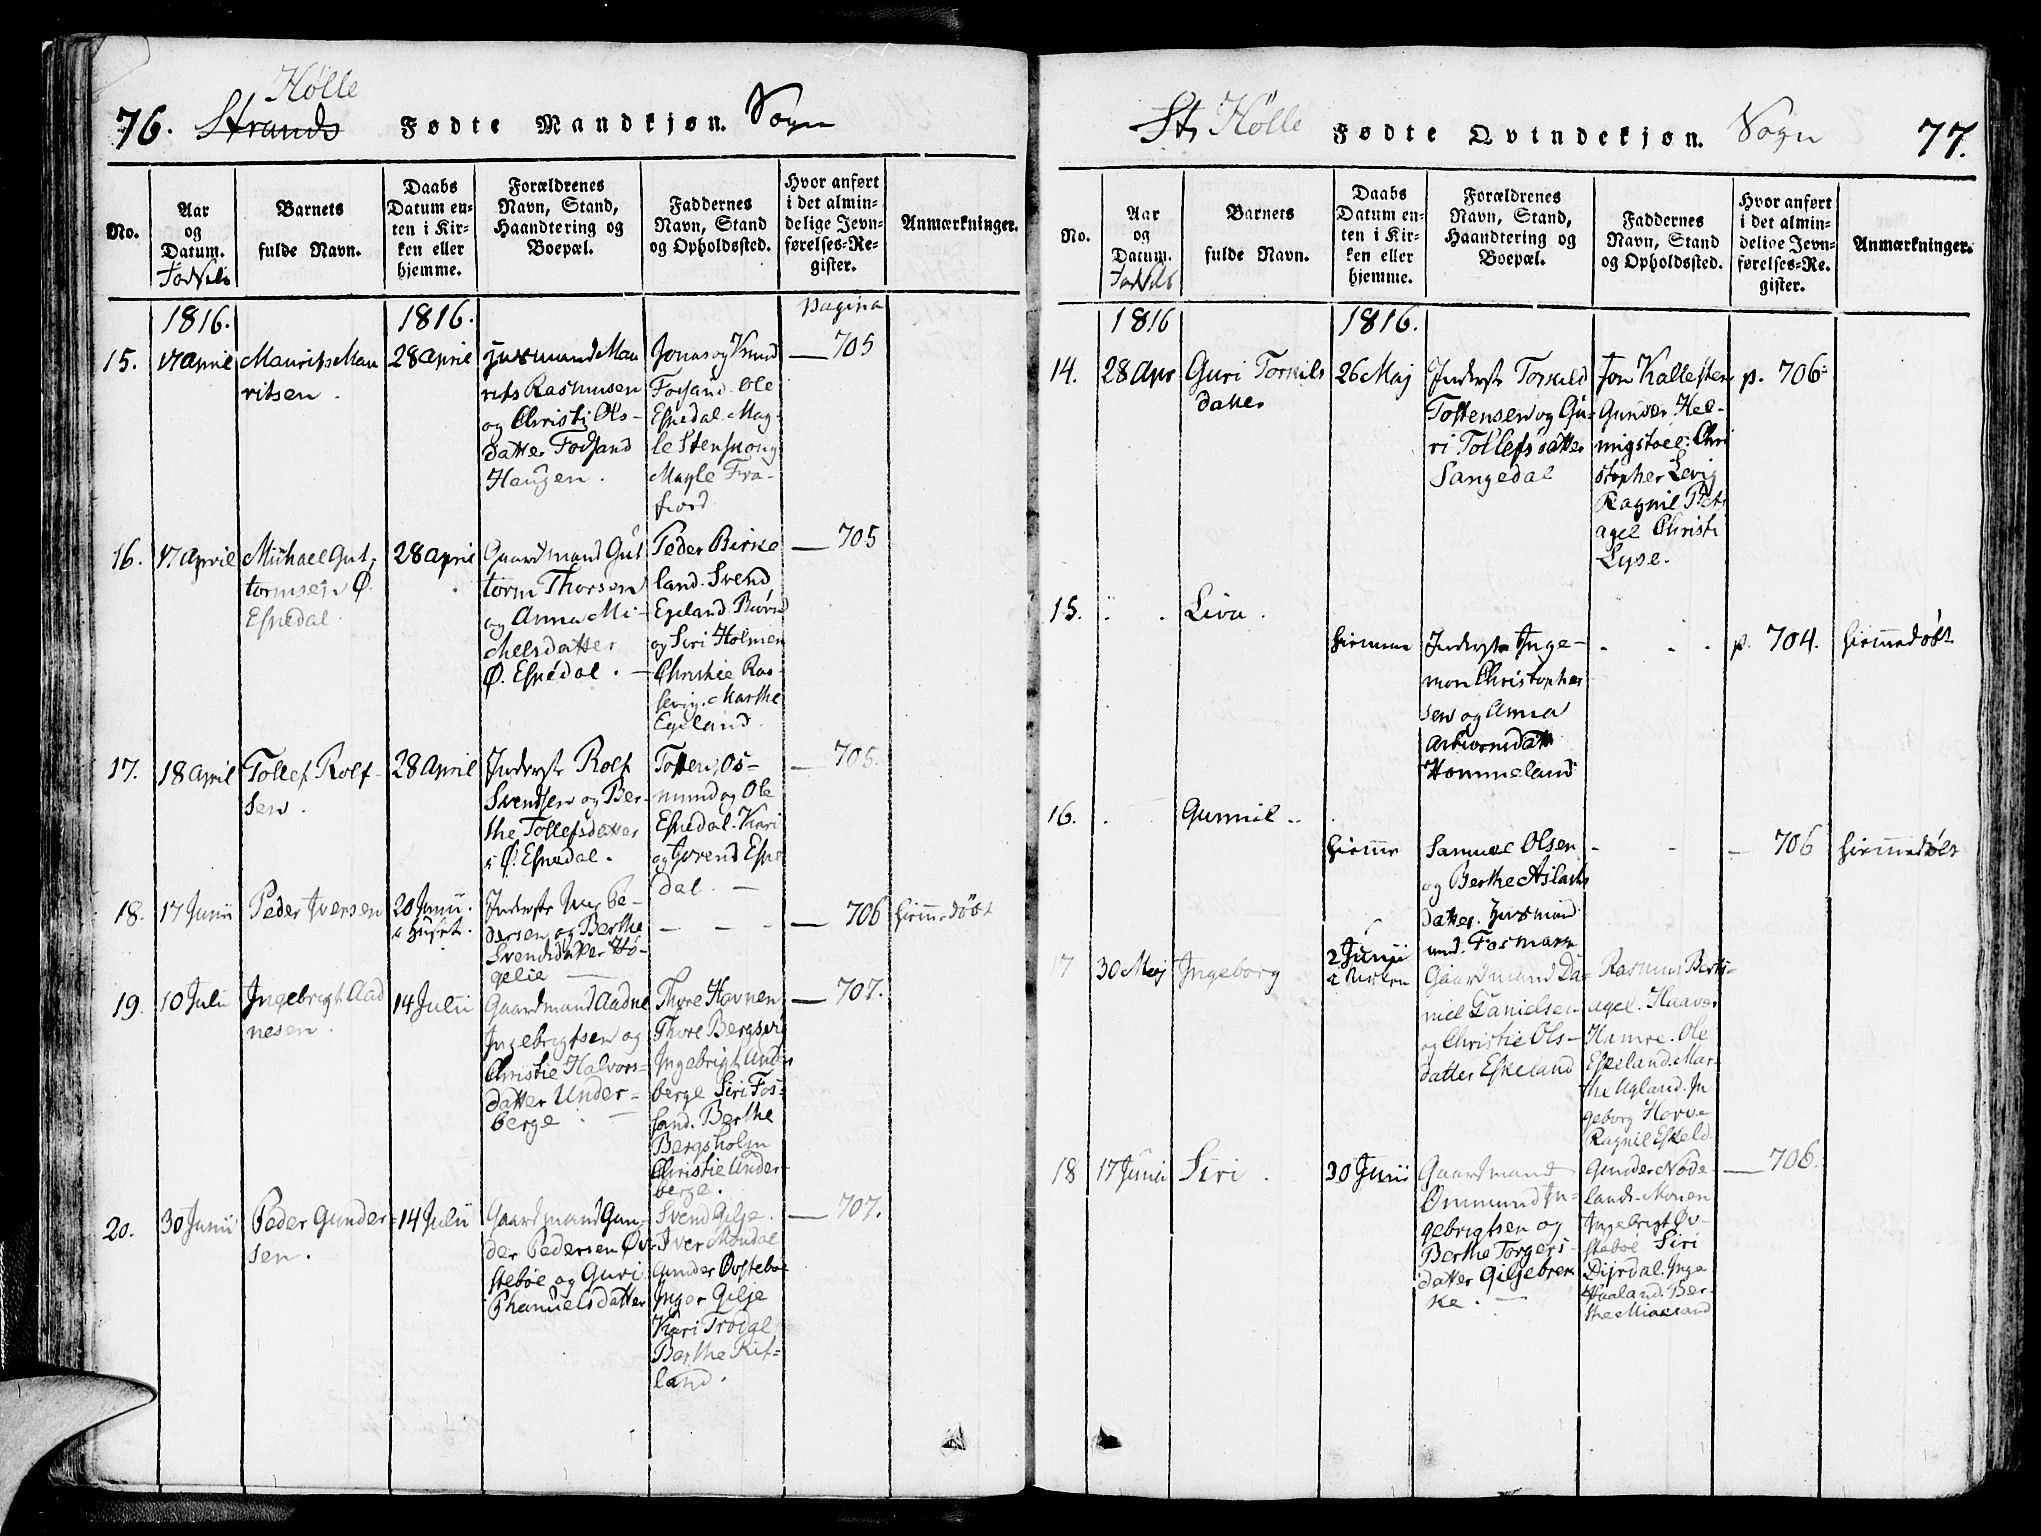 76. Strands Hølle Fødte Mandkjøn. Sogn
No.
Aar og Datum.
Barnets fulde Navn.
Daabs Datum enten i Kirken eller hjemme.
Forældrenes Navn, Stand, Haandtering og Boepæl.
Faddernes Navn, Stand og Opholdssted.
Hvor anført i det almindelige Jevnførelses-Register.
Anmærkninger.
1816.
1816.
Pagina
15.
17 April
Maurits Mau
ritsen.
28 April
Huusmand Mau
rits Rasmusen
og Christi Ols-
datter Fossand
Haugen.
Jonas og Knud
Fossand. Ole
Espedal. Mag-
le
Magle Fra-
fiord
705
16.
17 April
Michael Gut-
tormsen Ø.
Espedal.
28 April
Gaardmand Gut
torm Thorsen
og Anna Mi-
chelsdatter
Ø. Espedal.
Peder Birke
land. Svend
Egeland. Biørn
og Siri Holmen
Christie Ras-
sevig. Marthe
Egeland.
705
17.
18 April
Tollef Rolf-
sen.
28 April
Inderste Rolf
Svendsen og Ber-
the Tollefsdatter
Ø. Espedal.
Tosten, Os-
mund og Ole
Espedal. Kari
og Gurend Espe
dal.
705.
18.
17 Junii
Peder Iversen
20 Junii.
i Huset.
Inderste Iver Pe-
dersen og Berthe
Svendsdatter Hø-
gelie
706
hiemmedøbt
19.
10 Juli
Ingebrigt Aad
nesen.
14 Julii
Gaardmand Aadne
Ingebrigtsen og
Christie Halvors-
datter Under-
berge.
Thore Havnen
Thore Bergsvig
Ingebrigt Und-
berge Siri Fos-
sand. Berthe
Bergsholm
Christie Under-
berge.
707.
20.
30 Junii
Peder Gunder-
sen.
14 Julii
Gaardmand Gun-
der Pedersen Øv-
stebøe og Guri
Phanuelsdatter
Svend Gilje.
Iver Mondal
Gunder Øvstebøe
Inger Gilje
Kari
Berthe Rit-
land.
707.
St. Hølle Fødte Qvindekjøn. Sogn 77.
No.
Aar og Datum.
Barnets fulde Navn.
Daabs Datum enten i Kirken eller hjemme.
Forældrenes Navn, Stand, Haandtering og Boepæl.
Faddernes Navn, Stand og Opholdssted.
Hvor anført i det almindelige Jevnførelses-Register.
Anmærkninger.
1816
1816.
14.
28 Apr
Guri Torkils
datter
26 Maj
Inderste Torkild
Tostensen og Gu-
ri Tollefsdatter
Sangedal
Jon Kallesten
Gunvor Hel-
migstoel. Chri
stopher Levig
Ragnil Pets
agel Christi
Lyse.
p. 706
15.
Liva.
hiemme
Inderste Inge-
mon Christopher
sen og Anna
Asbiornsdatt
Hommeland
p. 704.
hiemmedøbt
16.
Gunnil
hiemme
Samuel Olsen
og Berthe Aslacks
datter. Huusmand
und. Fosmark
706
hiemmedøbt
17
30 Maj
Ingeborg
2 Junii
i Kirken
Gaardmand Da-
niel Danielsen
og Christie Ols-
datter Eskeland
Rasmus Berts-
agel. Haaver
Hamre. Ole
Eskeland. Mar-
the Ugland. In
geborg Havve
Ragnil Eskeld
18
17 Junii
Siri.
30 Junii
Gaardmand
Ommund In-
gebrigtsen og
Berthe Torgers-
datter Giljebrek-
ke.
Gunder Nøde-
land. Monen
Ingebrigt Øv-
stebøe Siri
Dirdal. Inga
Haaland. Ber-
the
706.